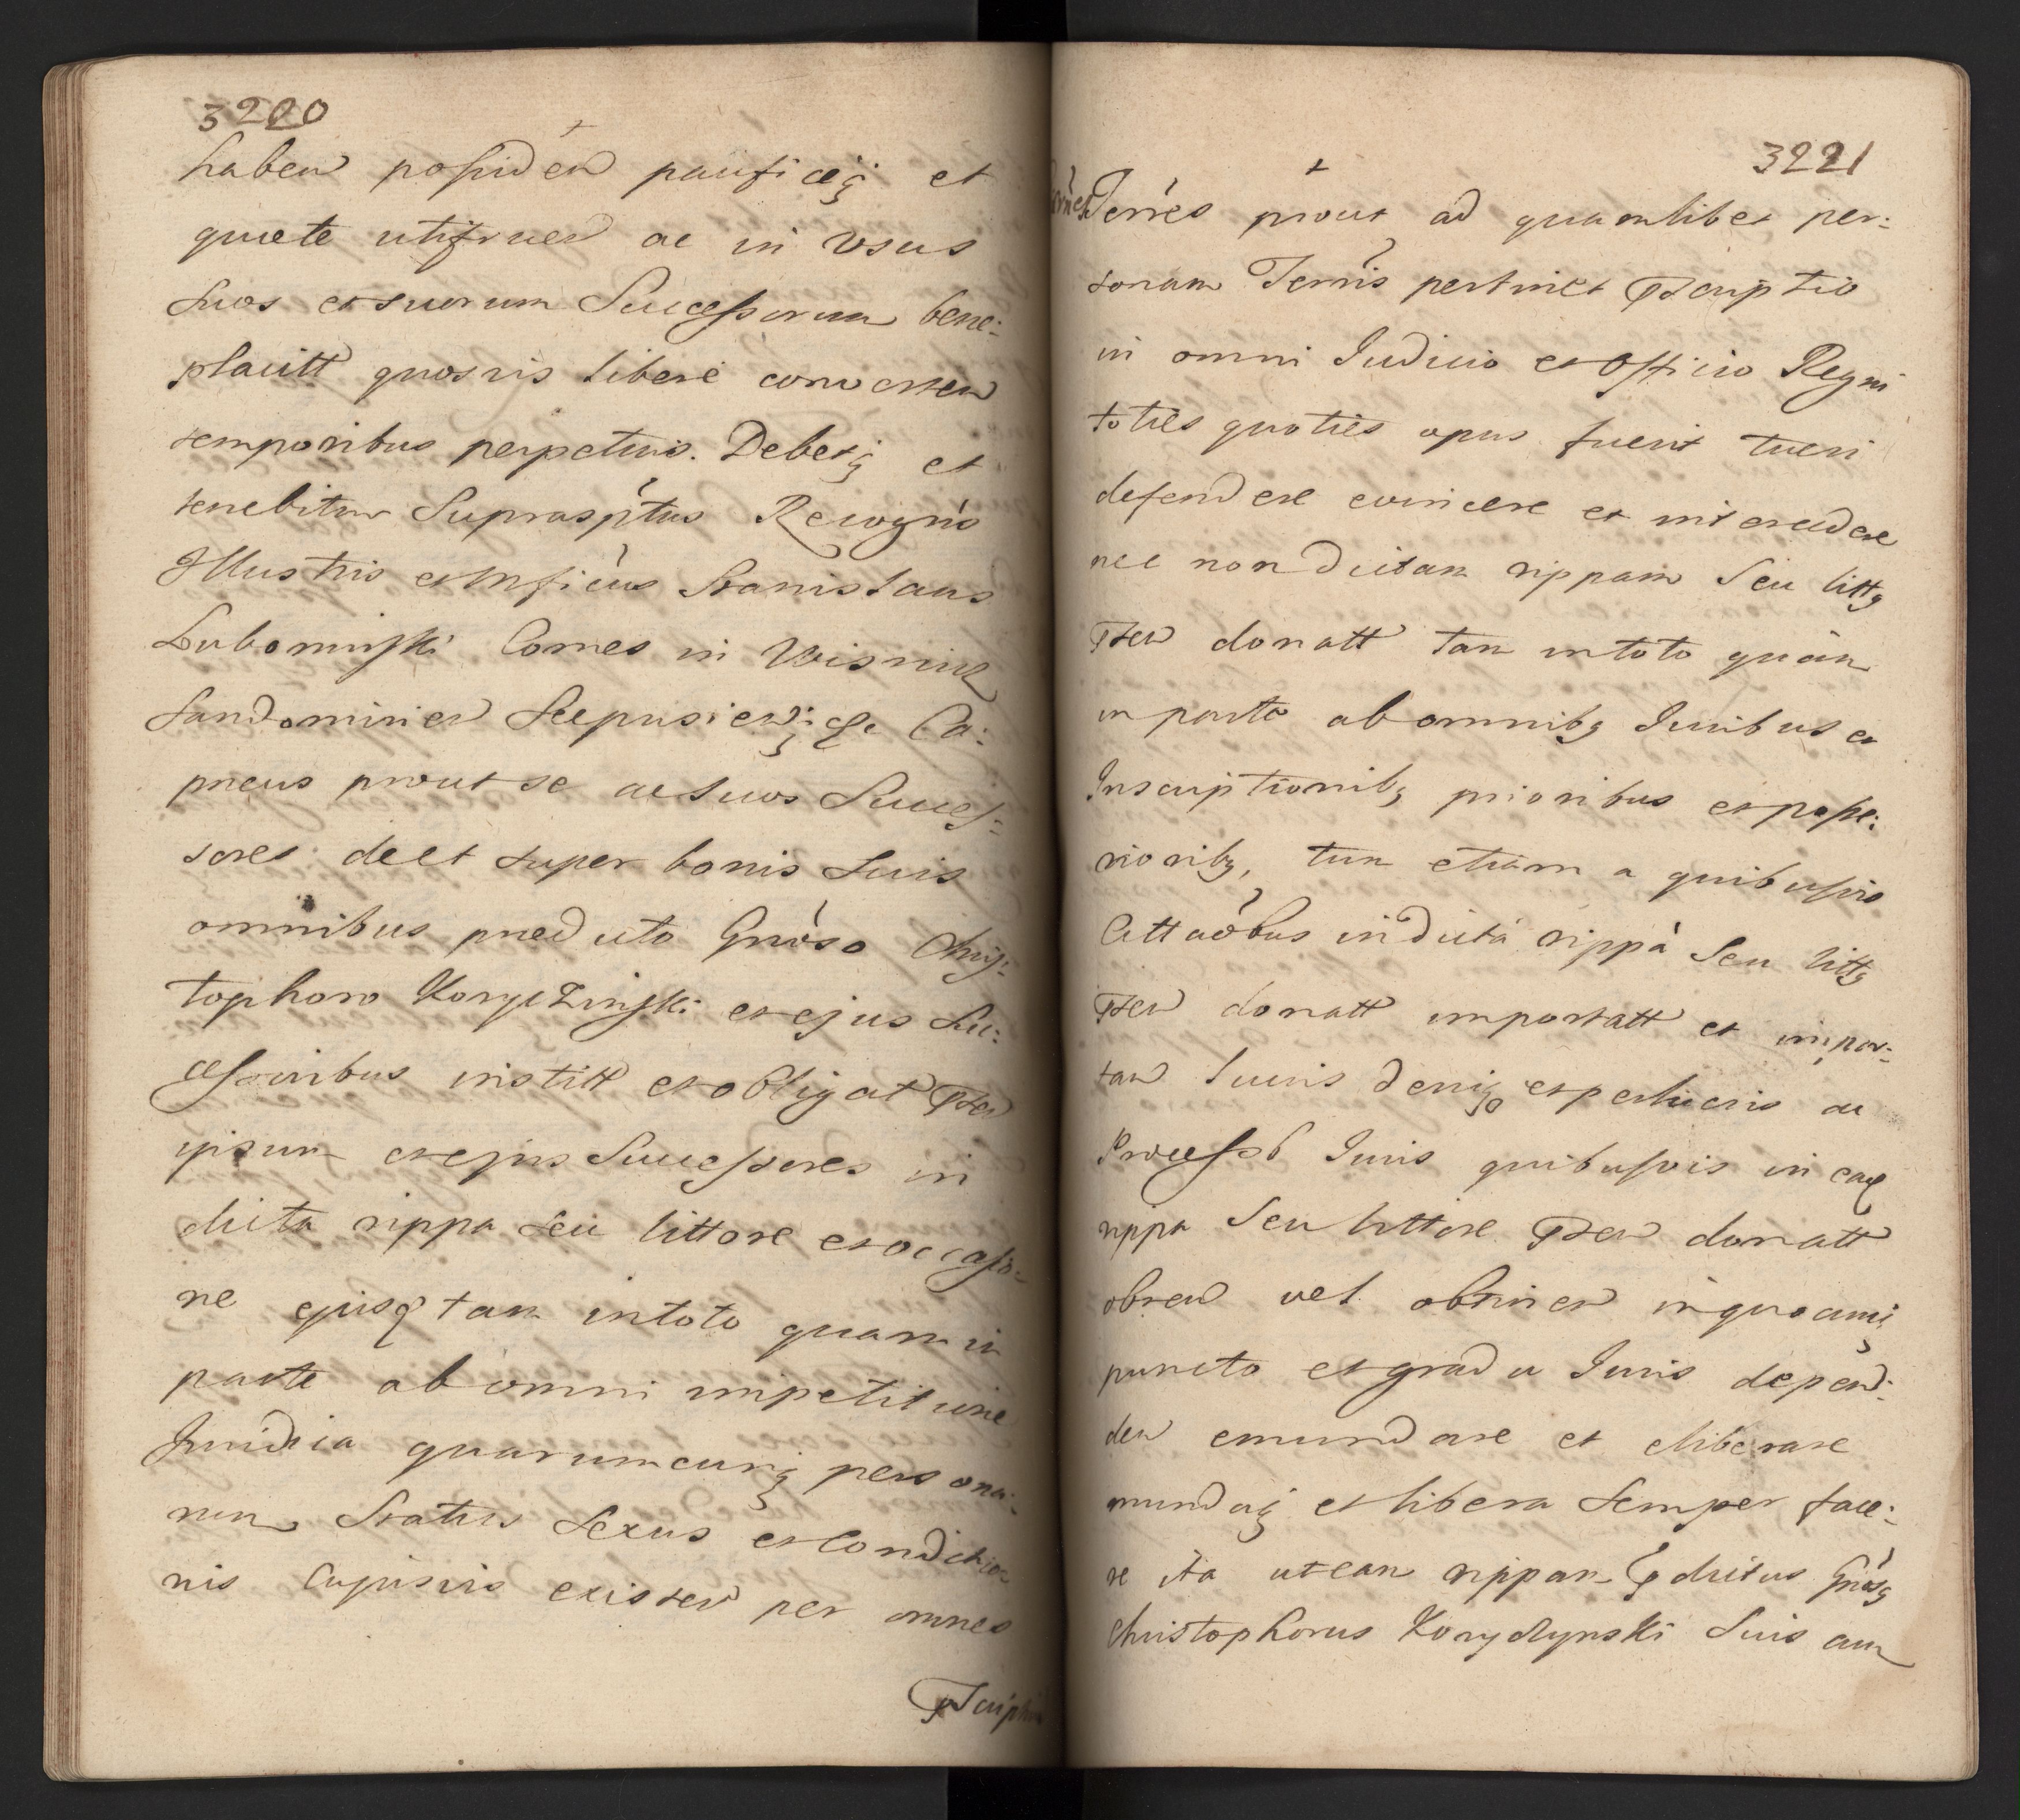 3220
haben possiden pacificeq et
quiete utifruen ac in Usus
Suos et suorum Successorum bene-
placitt quosvis libere converten
temporibus perpetuis. Debetq et
tenebitur Suprasptus Recogns
Illustris et Mficus Stanislaus
Lubomirski Comes in Wisnicz
Sandomirien Scepusienq &c Ca-
pneus prout se ac Suos Succes-
sores deet super bonis Suis
omnibus praedicto Gnoso Chris-
tophoro Koryczinski et ejus Su-
ccessoribus institt et obligat
ipsum et ejus Successores in
dicta rippa seu littore et occasio-
ne ejusq tam in toto quam in
parte ab omni impetitione
Juridica quarumcunq persona-
rum Status Sexus et Conditio-
nis Cujusvis existen per omnes
3221
Terres prout ad quamlibet per-
sonam Terris pertinet
in omni Judicio et Officio Regni
toties quoties opus fuerit tueri
defendere evincere et intercedere
nec non dictam rippam Seu littq
donatt tam in toto quam
in parte ab omnibq Juribus et
Inscriptionibq prioribus et poste-
rioribq, tum etiam a quibusvis
Cittaobus in dicta rippa Seu littq
donatt importatt et impor-
tan lucris deniq et perlucris ac
Processb Juris quibusvis in eaq
rippa Seu littore donatt
obten vel obtinen in quocunq
puncto et gradu Juris depen-
den emundare et eliberare
mundaq et libera semper face-
re ita ut eam rippam dictus Gnosq
Christophorus Koryczynski Suis cum